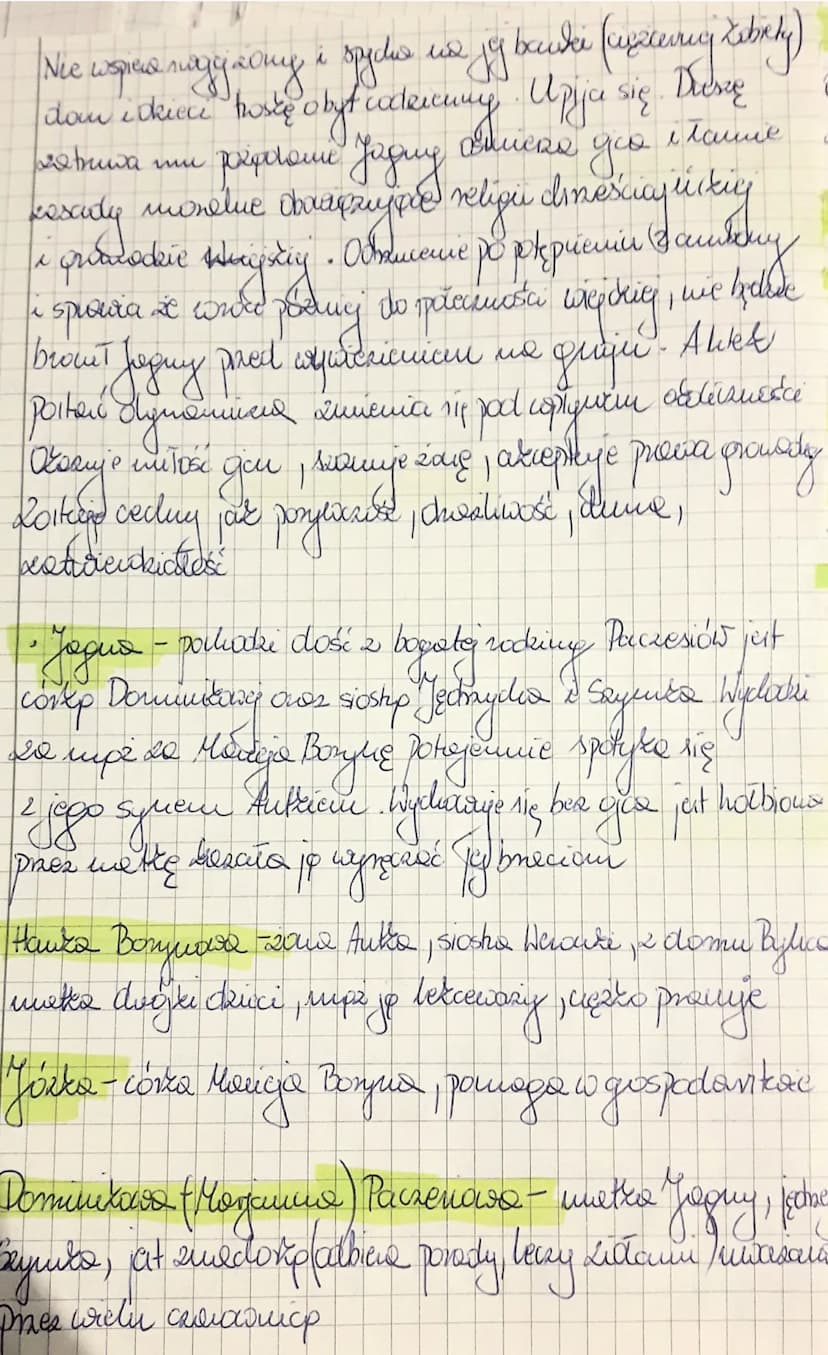 Nie wspiera swojej żony i spycha na jej barki (ciężarnej kobiety)
dom i dzieci troskę o byt codzienny. Upija się. Duszę
zatruwa mu pożądanie Jagny ośmiesza ojca i łamie
zasady moralne obowiązujące religii chrześcijańskiej
i gromadzie wiejskiej. Odrzucenie po potępieniu z ambony
i sprawia że wraca później do społeczności wiejskiej, nie będzie
bronił Jagny przed wywiezieniem na gnoju. Antek
postać dynamiczna zmienia się pod wpływem okoliczności
Okazuje miłość ojcu, szanuje żonę, akceptuje prawa gromady
Zostają cechy jak porywczość, chciwość, duma,
zatwardziałość
• Jagna – pochodzi dość z bogatej rodziny Paczesiów jest
córką Dominikowej oraz siostrą Jędrzycha i Szymka Wychodzi
za mąż za Macieja Borynę potajemnie spotyka się
z jego synem Antkiem. Wychowuje się bez ojca jest hołbiona
przez matkę kazała ją wyręczać jej braciom
Hanka Borynowa – żona Antka, siostra Weronki, z domu Bylica
matka dwójki dzieci, mąż ją lekceważy, ciężko pracuje
Józka – córka Macieja Boryna, pomaga w gospodarstwie
Dominikowa (Marjanna) Paczesiowa – matka Jagny, Jędrze
Szymka, jest znachorką (odbiera porody, leczy ziołami) uważana
przez wielu czarownicą